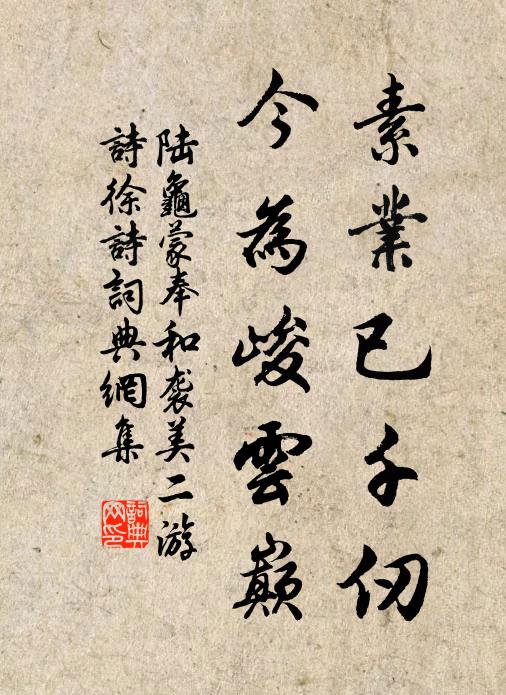 素業已千仞
今為峻雲巔
陸龜蒙奉和襲美二游
詩徐詩詞典網集
詞典網印